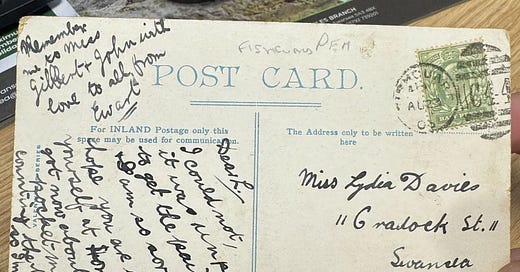 LES BRANCH
Remember
me to miss
Gilbert & John with
love to all from
Ewart
FISHGUARD PEM
POST CARD.
For INLAND Postage only this
space may be used for communication.
The Address only to be written
here
Dear L
I could not,
it was imp
to get the
I am so sor
hope you are
yourself at
got now about
pocket m
the
so I m
SERIES
AU
Miss Lydia Davies
11 Cradock St.
Swansea